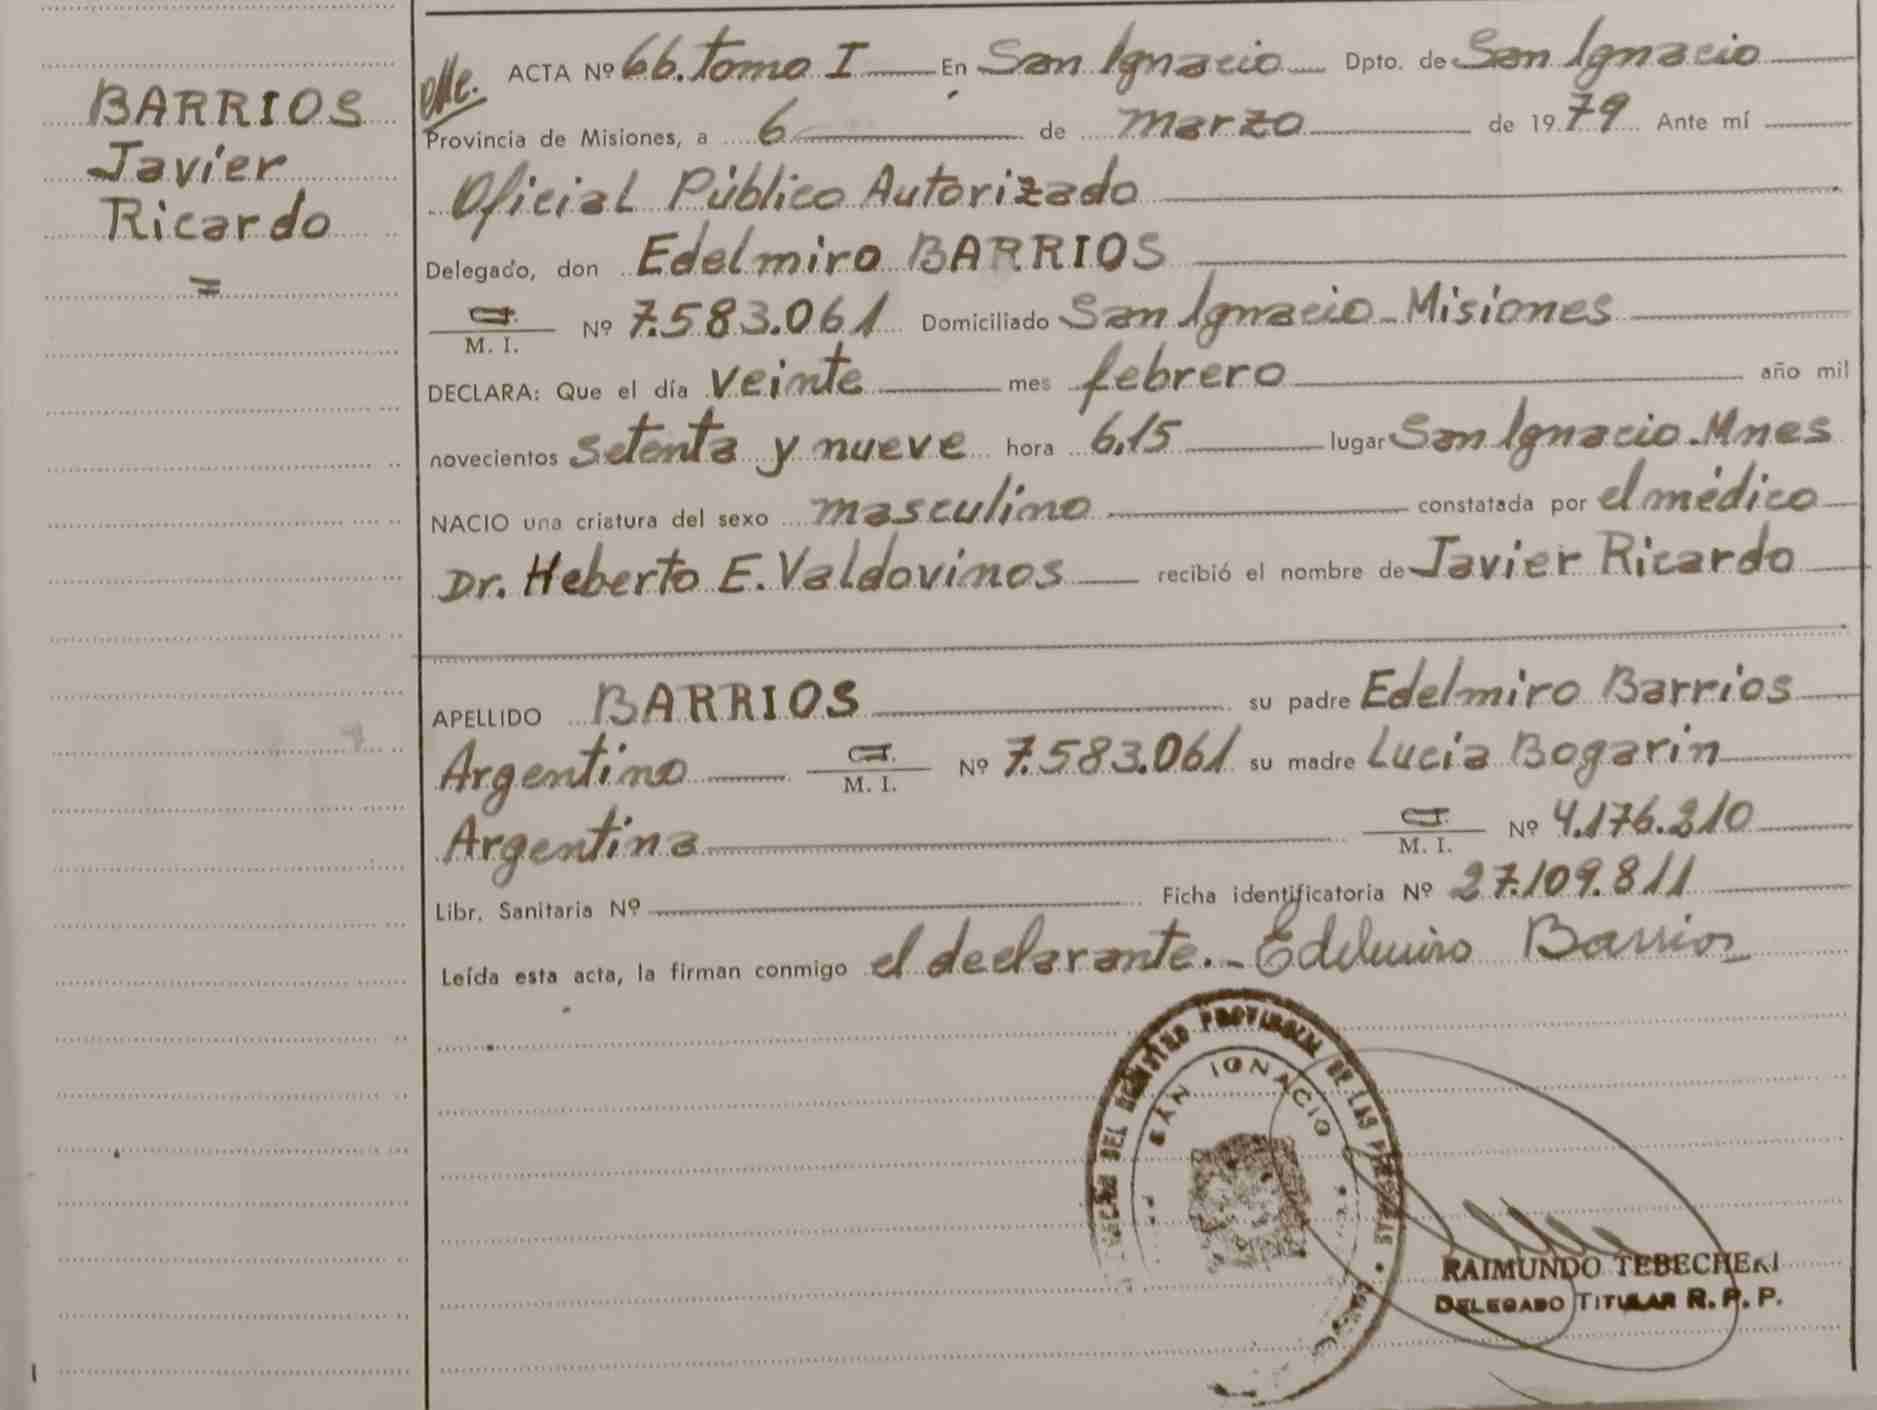 BARRIOS
Javier
Ricardo
=
ACTA Nº 66. Tomo I En San Ignacio Dpto. de San Ignacio
Provincia de Misiones, a 6 de marzo de 1979 Ante mí
Oficial Público Autorizado
Delegado, don Edelmiro BARRIOS
M. I. Nº 7.583.061 Domiciliado San Ignacio - Misiones
DECLARA: Que el día veinte mes febrero año mil
novecientos setenta y nueve hora 6,15 lugar San Ignacio - Mnes
NACIO una criatura del sexo masculino constatada por el médico
Dr. Heberto E. Valdovinos recibió el nombre de Javier Ricardo
APELLIDO BARRIOS su padre Edelmiro Barrios
Argentino M. I. Nº 7.583.061 su madre Lucía Bogarin
Argentina M. I. Nº 4.176.210
Libr. Sanitaria Nº Ficha identificatoria Nº 27.109.811
Leída esta acta, la firman conmigo el declarante. - Edelmiro Barrios
DEL REGISTRO PROVINCIAL DE LAS PERSONAS
SAN IGNACIO
RAIMUNDO TEBECHERI
DELEGADO TITULAR R. P. P.